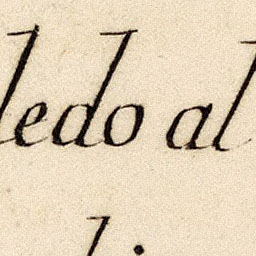 ledo al